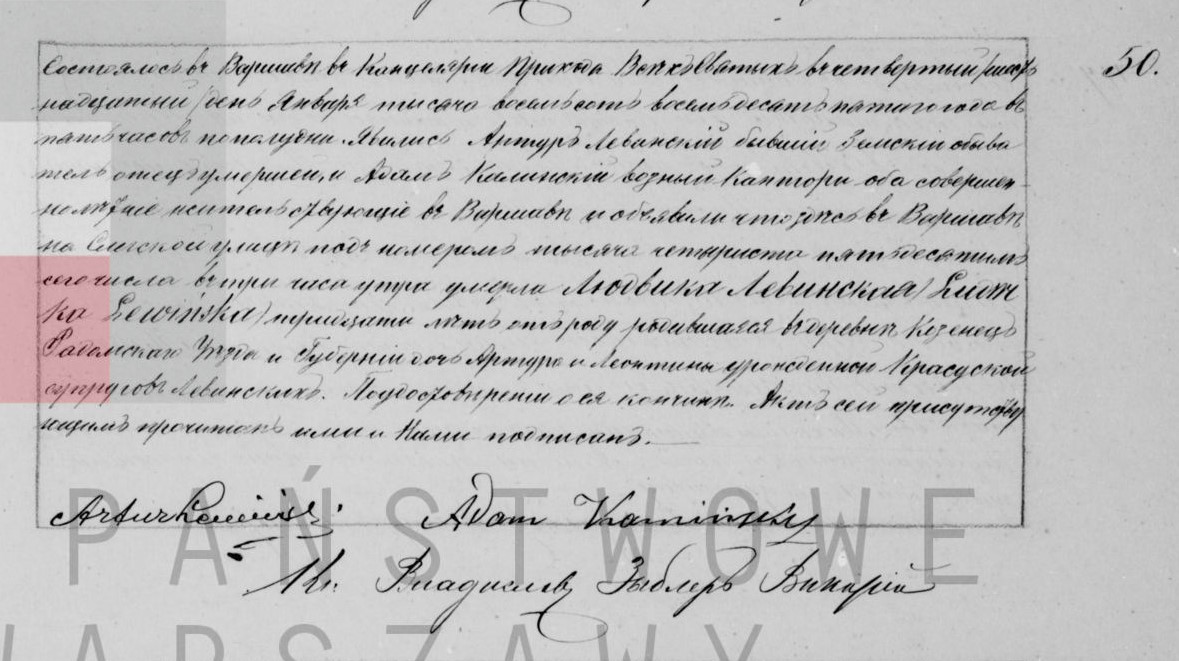 Состоялось въ Варшавѣ въ Канцеляріи Прихода Всѣхъ Святыхъ въ четвертый /шест
надцатый/ день Января тысяча восемьсотъ восемьдесятъ пятаго года въ
пять часовъ пополудни. Явились Артуръ Левинскій бывшій Земскій обыва
тель отецъ умершей, и Адамъ Каминскій возный Конторы оба совершен-
нолѣтніе жительствующіе въ Варшавѣ и объявили что здѣсь въ Варшавѣ
на улицѣ подъ номеромъ тысяча четыриста пятьдесятымъ
сего числа въ три часа утра умерла Людвика Левинская /Ludwi
ka Lewińska/ тридцати лѣтъ отъ роду родившаяся въ деревнѣ
Радомскаго Уѣзда и Губерніи дочь Артура и Леонтины урожденной Красуской
супруговъ Левинскихъ. По удостовѣреніи о ея кончинѣ. Актъ сей присутству
ющимъ прочитанъ ими и Нами подписанъ.
50.
Artur Lewiński Adam Kaminsky
Кс. Владиславъ Викарій
PAŃSTWOWE
WARSZAWY